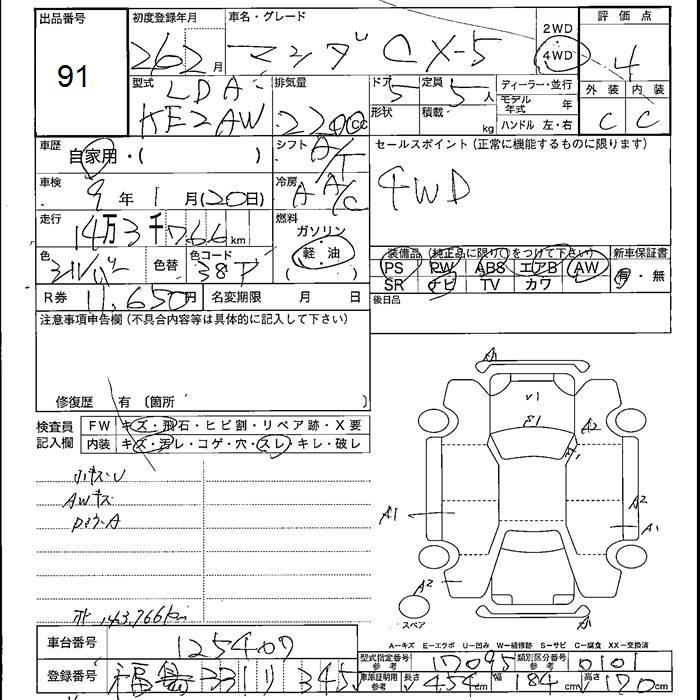 出品番号 初度登録年月 車名・グレード 2WD 評価点
91 26 2 月 マツダ CX-5 4WD 4
型式 LDA- 排気量 ドア 5 定員 5 人 ディーラー・並行 外装 内装
KE2AW 2200 cc 形状 積載 kg モデル年式 年 C C
ハンドル 左・右
車歴 自家用・( ) シフト A/T セールスポイント(正常に機能するものに限ります)
車検 9 年 1 月(20日) 冷房 A A/C 4WD
走行 14万3千766 km 燃料 ガソリン
色 シルバー 色替 色コード 38P 軽・油 ( )
装備品(純正品に限り○をつけて下さい) 新車保証書
PS PW ABS エアB AW 有・無
SR ナビ TV カワ
R券 11,650円 名変期限 月 日 後日品
注意事項申告欄(不具合内容等は具体的に記入して下さい)
修復歴 有 〔箇所 〕
検査員記入欄 FW キズ・飛石・ヒビ割・リペア跡・X要
内装 キズ・汚レ・コゲ・穴・スレ・キレ・破レ
小キズ・U
AWキズ
A
143,766km
A
U1
A2
A2
A1
A1
A2
A1
スペア
A-キズ E-エクボ U-凹み W-補修跡 S-サビ C-腐食 XX-交換済
車台番号 125409
型式指定番号 参考 17095 類別区分番号 参考 0101
登録番号 福島 331 345
車庫証明用 参考 長さ 454 cm 幅 184 cm 高さ 170 cm